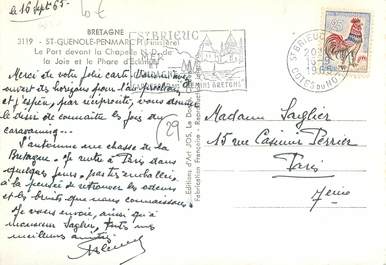 le 16 sept 65.
BRETAGNE
3119 - ST-GUENOLE-PENMARC'H (Finistère)
Le Port devant la Chapelle N.D. de
la Joie et le Phare d'Eckmühl
Merci de votre jolie carte. Vous m'avez
ouvert des horizons pour l'an prochain
et j'espère, par réciprocité, vous donner
le désir de connaître les joies du
caravaning...
L'automne me chasse de la
Bretagne. Je rentre à Paris dans
quelques jours, pas très emballée
à la pensée de retrouver les odeurs
et les bruits que nous connaissons.
Je vous envoie, ainsi qu'à
Monsieur Saglier, toutes mes
meilleures amitiés
(29)
Editions d'Art JOS
Fabrication Française - Reproduction
ST BRIEUC
CHEMINS BRETONS
ST BRIEUC
CÔTES DU NORD
Madame Saglier
15 rue Casimir Perrier
Paris
7ème